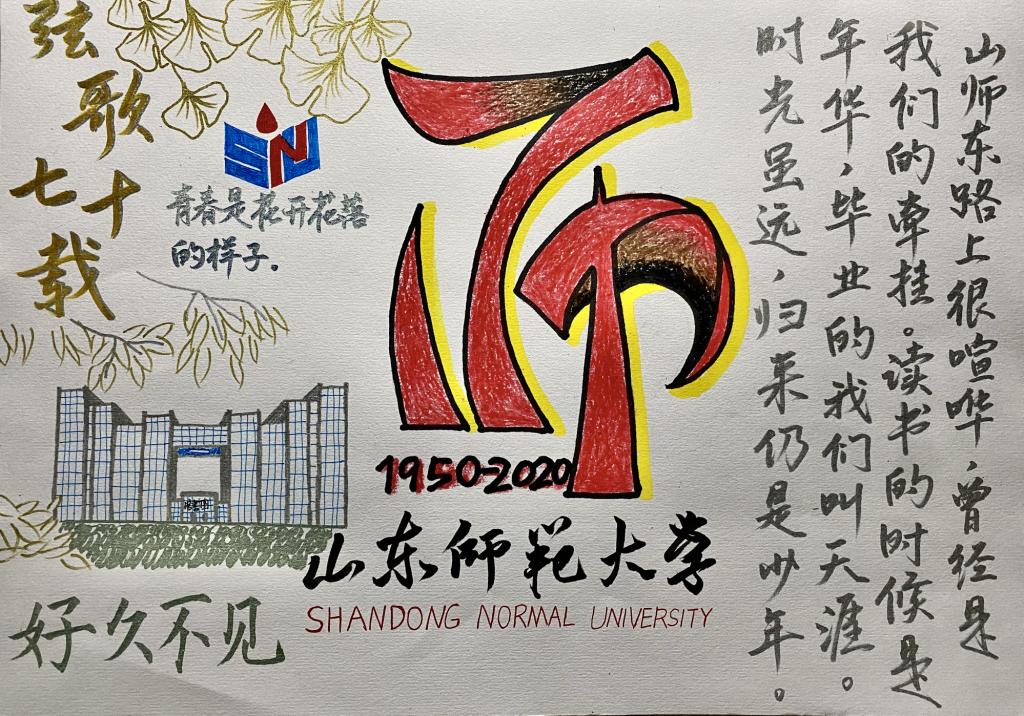 弦歌
七十载
SNU
青春是花开花落
的样子.
1950-2020
山东师范大学
SHANDONG NORMAL UNIVERSITY
好久不见
山师东路上很喧哗,曾经是
我们的牵挂。读书的时候是
年华,毕业的我们叫天涯。
时光虽远,归来仍是少年。